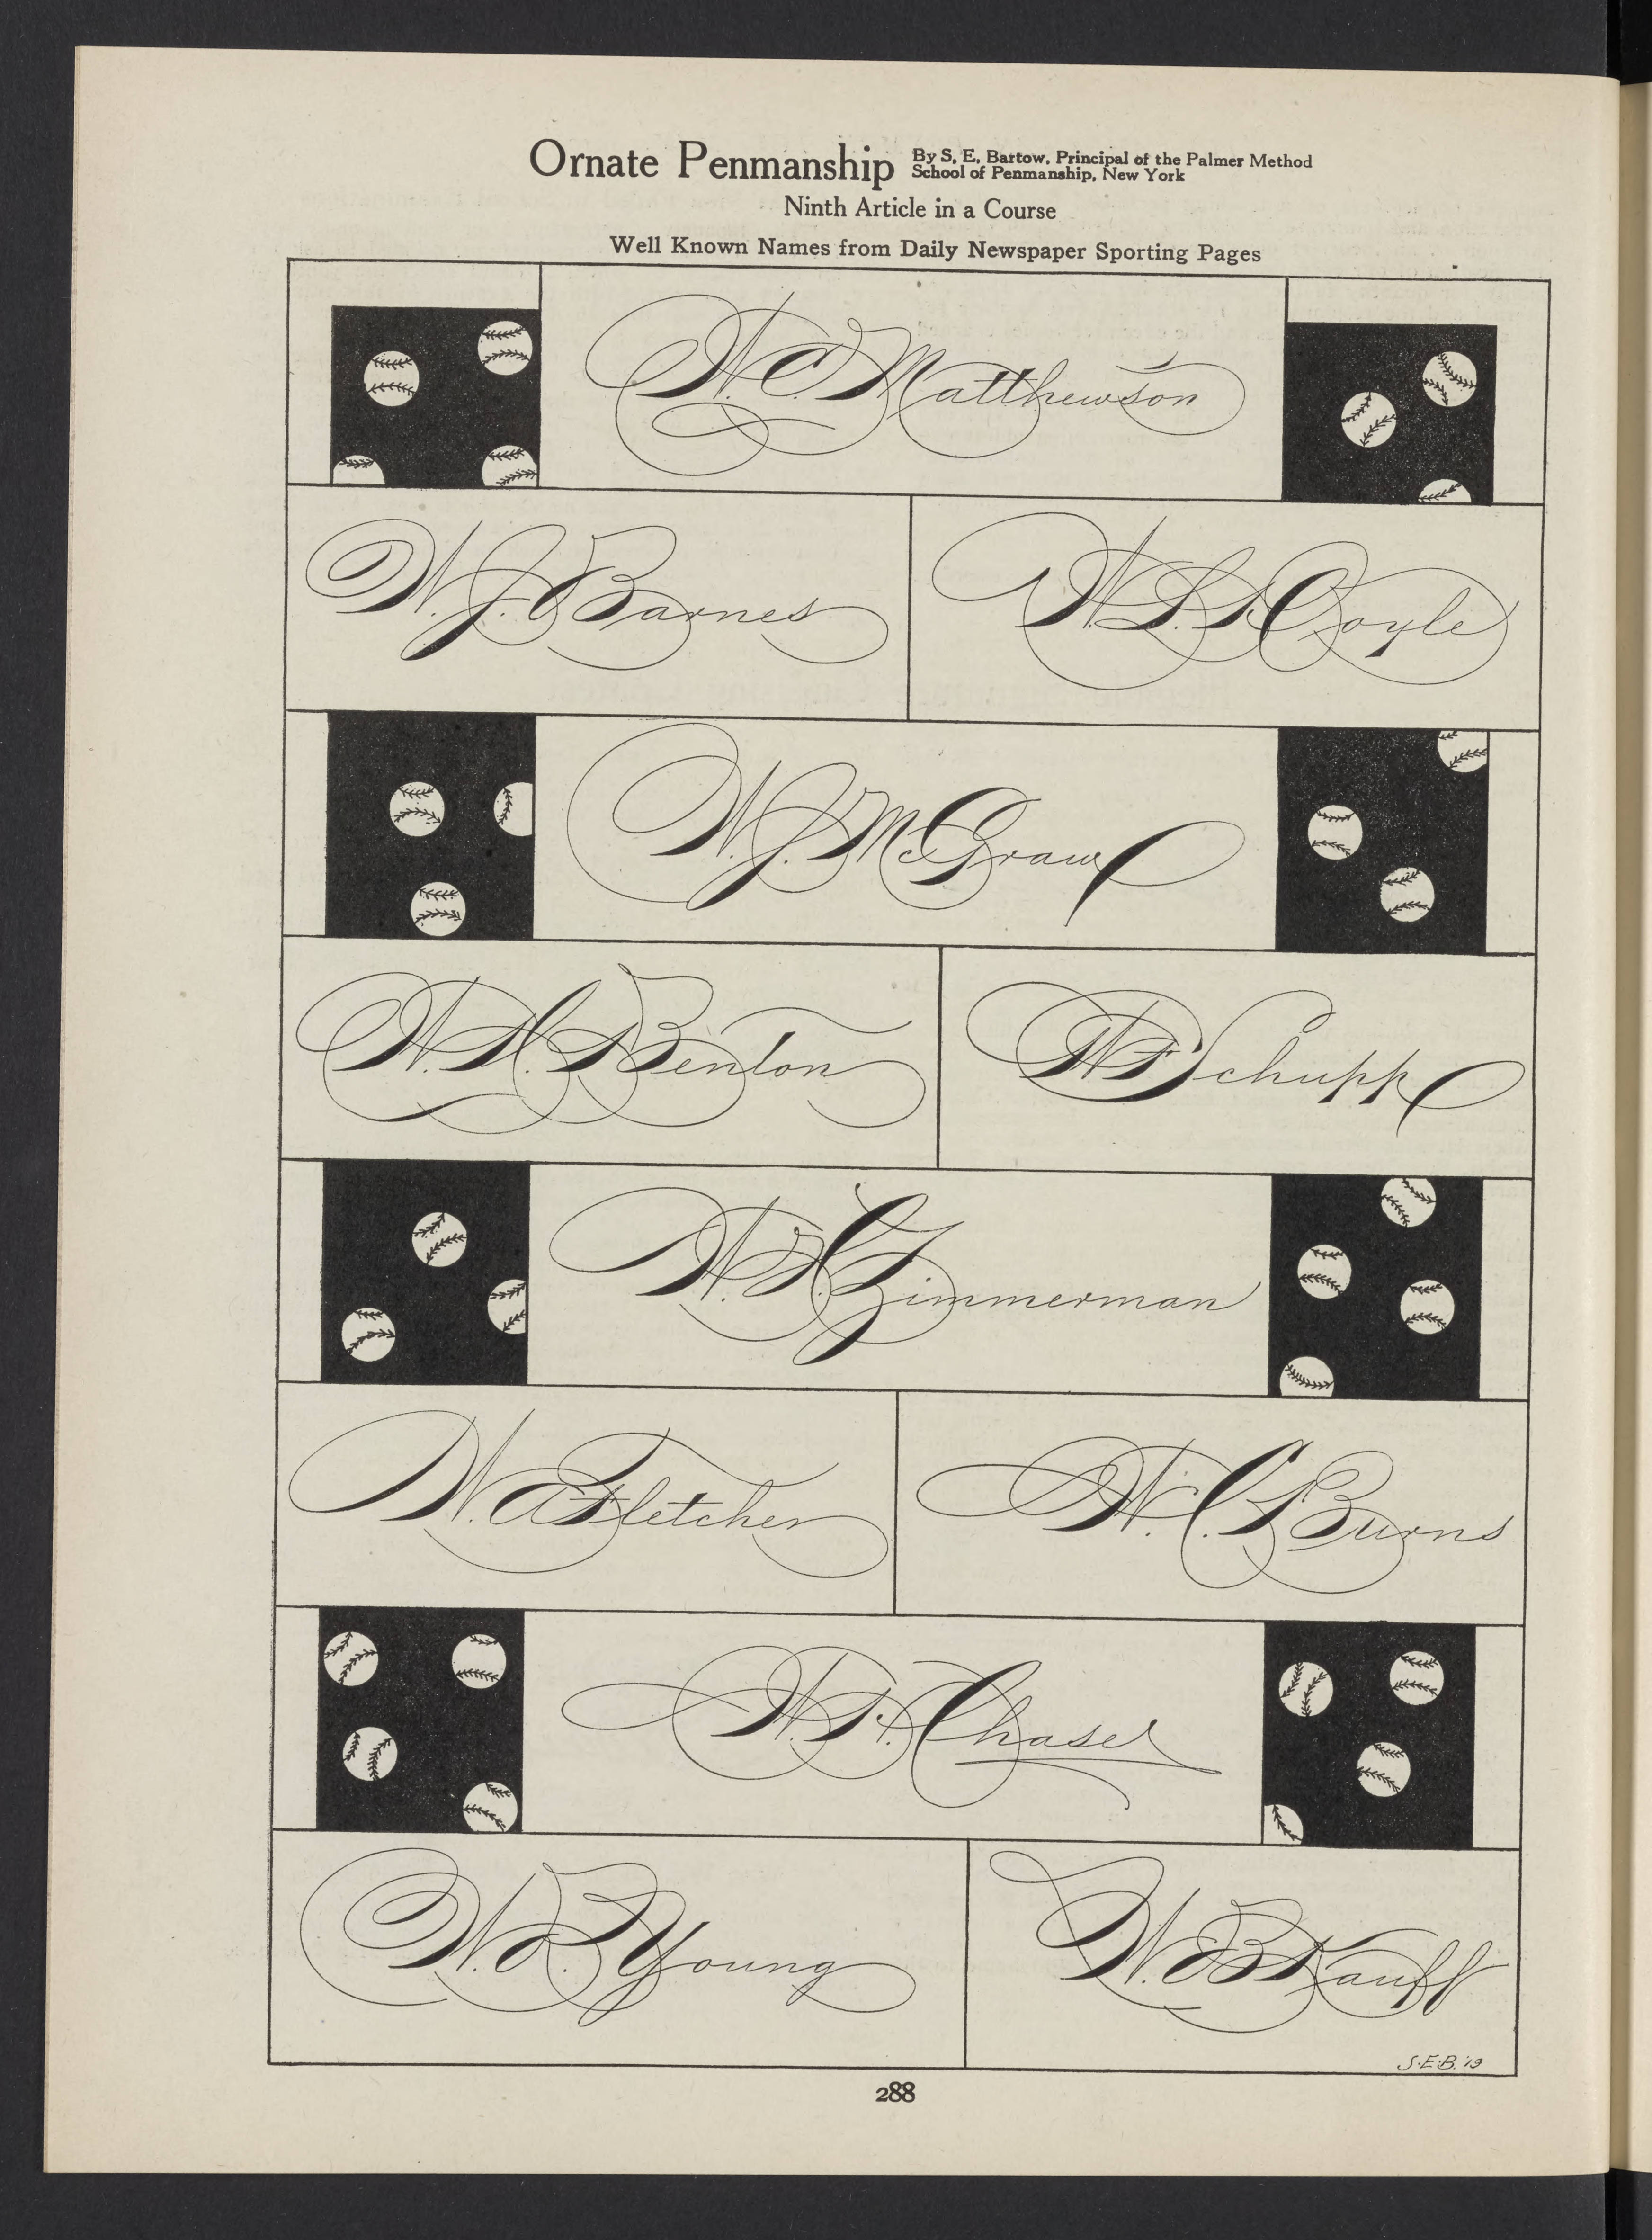 Ornate Penmanship By S. E. Bartow, Principal of the Palmer Method
School of Penmanship, New York
Ninth Article in a Course
Well Known Names from Daily Newspaper Sporting Pages
W. C. Matthewson
W. J. Barnes
W. L. Doyle
W. J. McGraw
W. H. Benton
W. F. Schupp
W. H. Zimmerman
W. A. Fletcher
W. G. Burns
W. H. Chase
W. R. Young
W. B. Kauff
S.E.B. '19
288